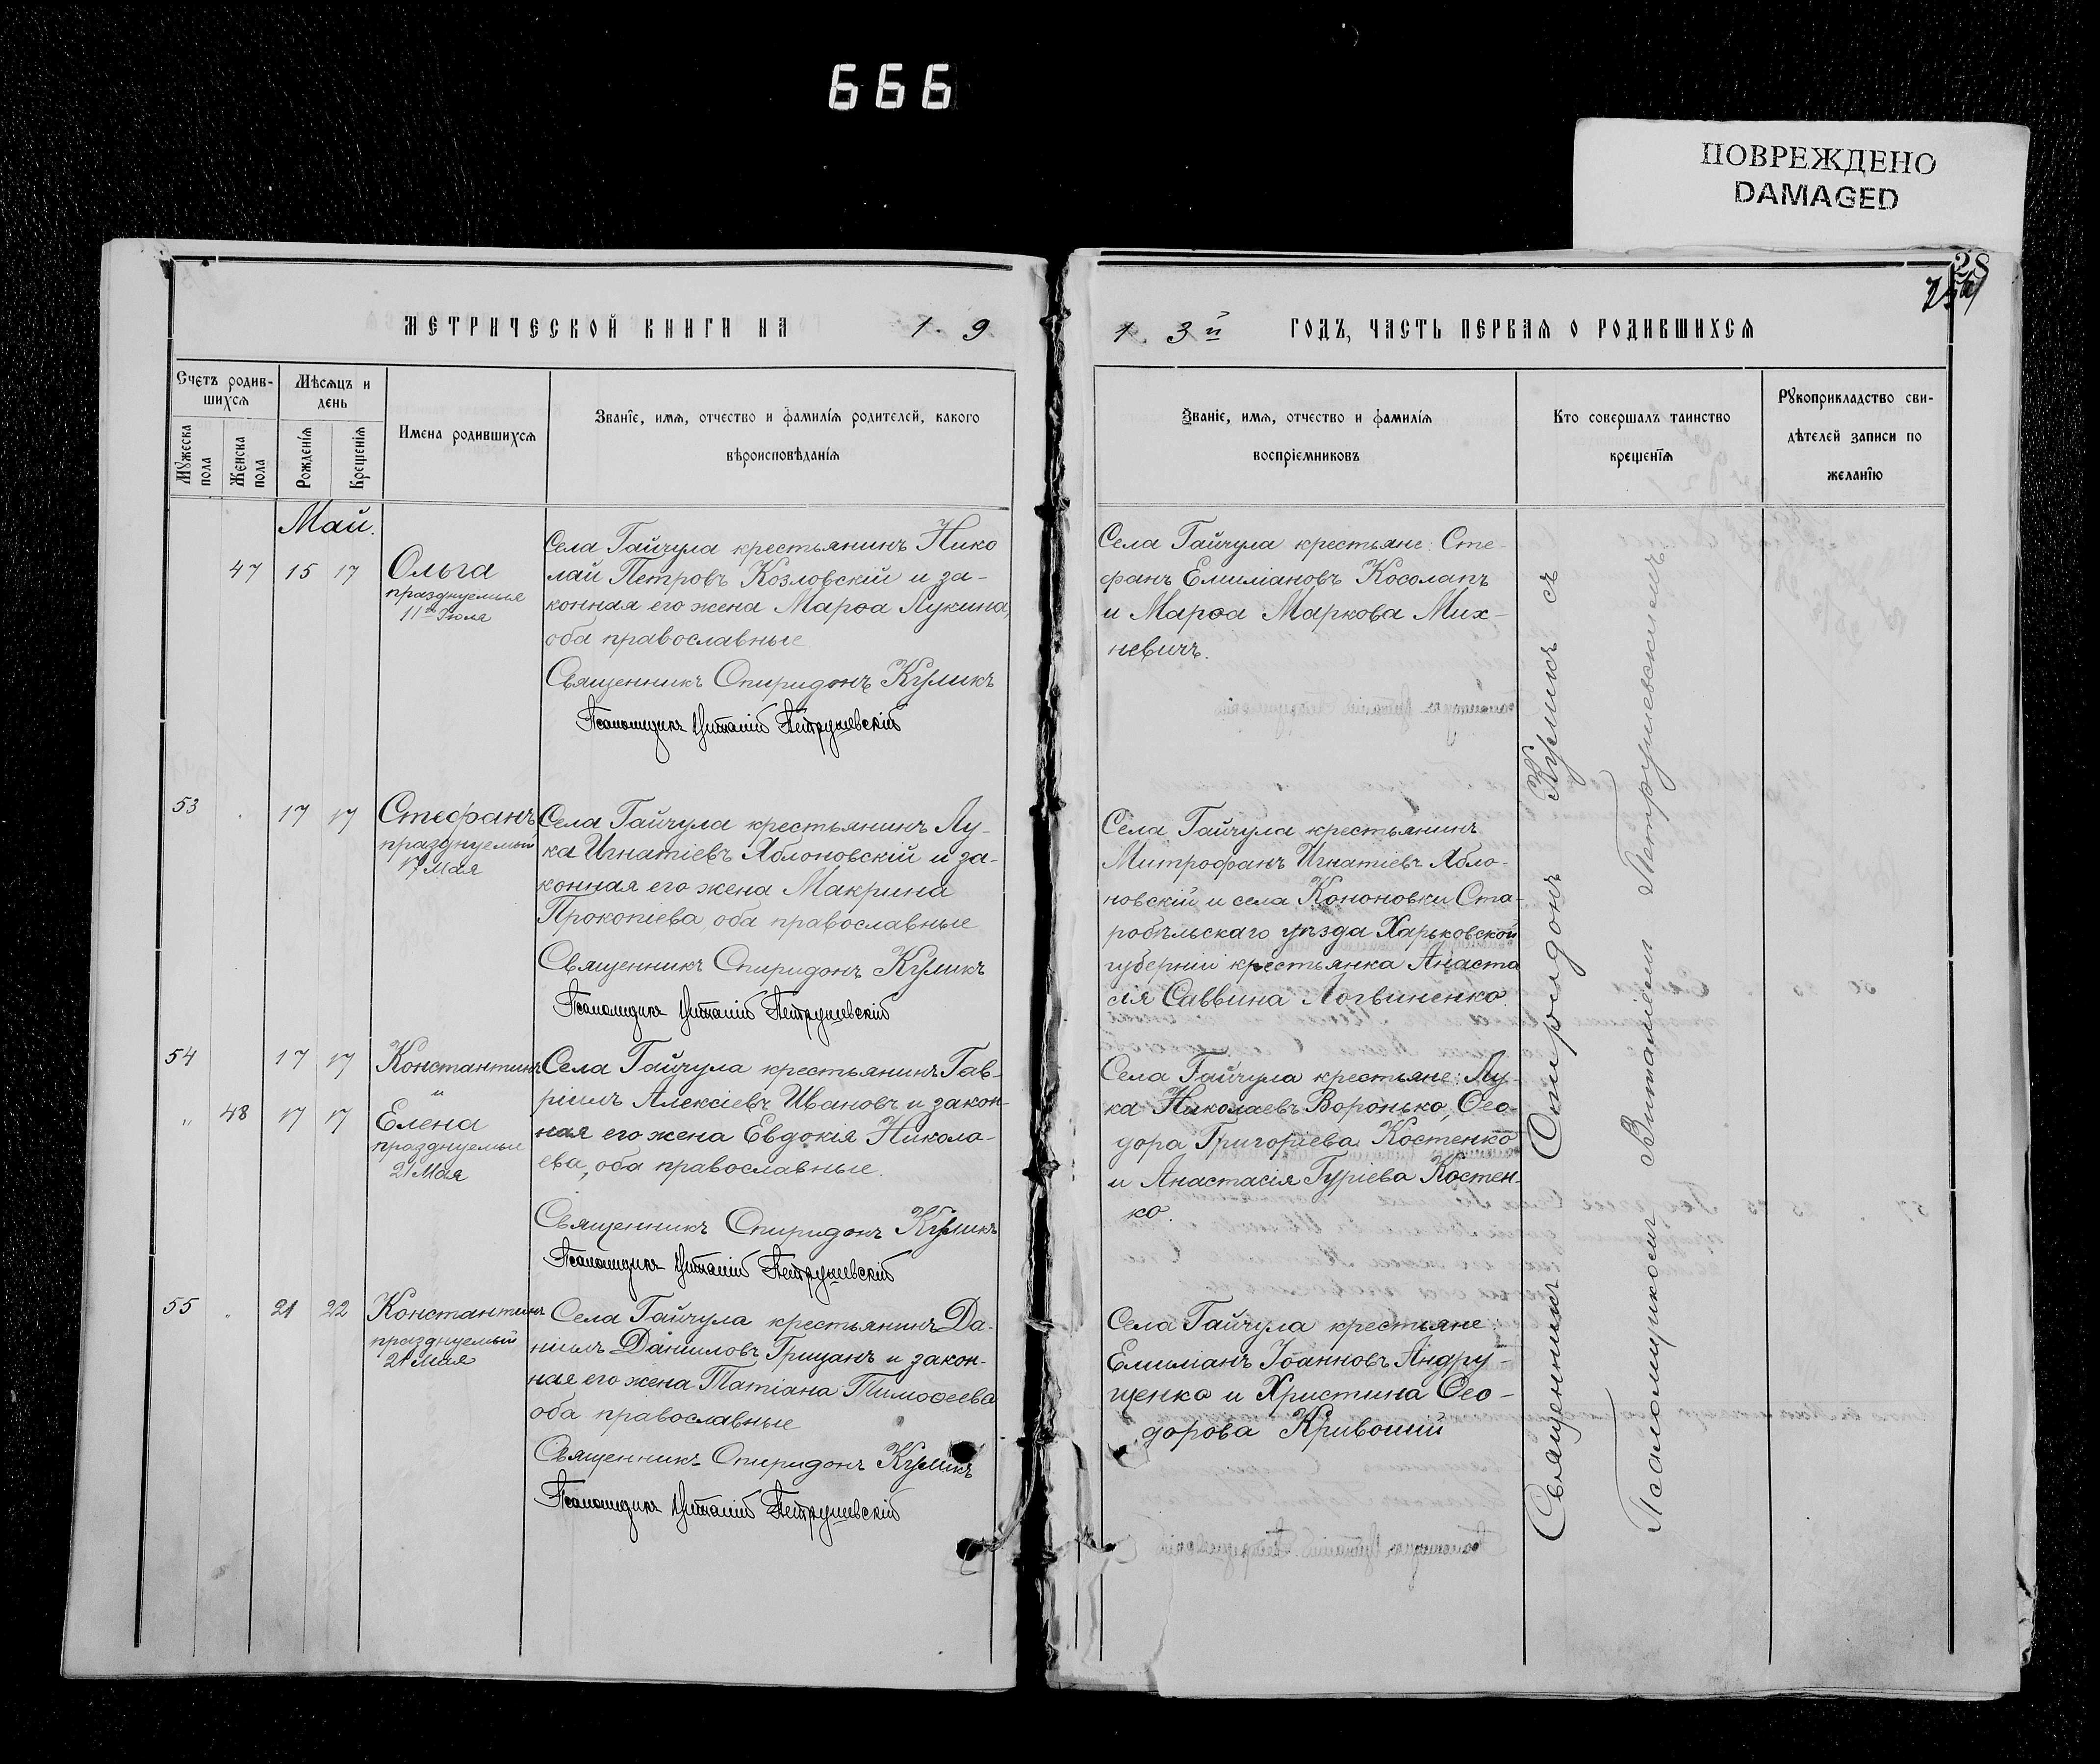 666
ПОВРЕЖДЕНО
DAMAGED
28
МЕТРИЧЕСКОЙ КНИГИ НА 1 9
1 3й ГОДЪ, ЧАСТЬ ПЕРВАЯ О РОДИВШИХСЯ
Счетъ родив-
шихся
Мужеска пола
Женска пола
Мѣсяцъ и
день
Рожденія
Крещенія
Имена родившихся
Званіе, имя, отчество и фамилія родителей, какого
вѣроисповѣданія
Званіе, имя, отчество и фамилія
воспріемниковъ
Кто совершалъ таинство
крещенія
Рукоприкладство сви-
дѣтелей записи по
желанію
Май.
47 15 17
Ольга
празднуемыя
11го Іюля
Села Гайчула крестьянинъ Нико
лай Петровъ Козловскій и за-
конная его жена Марѳа Лукина,
оба православные
Священникъ Спиридонъ Куликъ
Псаломщикъ Виталій Петрушевскій
Села Гайчула крестьяне: Сте-
фанъ Емиліановъ Косолапъ
и Марѳа Маркова Мих-
невичъ.
53 17 17
Стефанъ
празднуемый
17 Мая
Села Гайчула крестьянинъ Лу-
ка Игнатіевъ Яблоновскій и за-
конная его жена Макрина
Прокопіева, оба православные
Священникъ Спиридонъ Куликъ
Псаломщикъ Виталій Петрушевскій
Села Гайчула крестьянинъ
Митрофанъ Игнатіевъ Ябло-
новскій и села Кононовки Ста-
робѣльскаго уѣзда Харьковской
губерніи крестьянка Анаста
сія Саввина Логвиненко.
54 17 17
Константинъ
и
„ 48 17 17
Елена
празднуемые
21 Мая
Села Гайчула крестьянинъ Гав-
ріилъ Алексіевъ Ивановъ и закон-
ная его жена Евдокія Никола-
ева, оба православные.
Священникъ Спиридонъ Куликъ
Псаломщикъ Виталій Петрушевскій
Села Гайчула крестьяне: Лу-
ка Николаевъ Воронько, Ѳео-
дора Григоріева Костенко
и Анастасія Гуріева Костен-
ко.
55 21 22
Константинъ
празднуемый
21 Мая
Села Гайчула крестьянинъ Да-
ніилъ Даніиловъ Грицанъ и закон-
ная его жена Татіана Тимоѳеева
оба православные
Священникъ Спиридонъ Куликъ
Псаломщикъ Виталій Петрушевскій
Села Гайчула крестьяне:
Емиліанъ Іоанновъ Андру-
щенко и Христина Ѳео-
дорова Кривоший
Священникъ Спиридонъ Куликъ съ
Псаломщикомъ Виталіемъ Петрушевскимъ